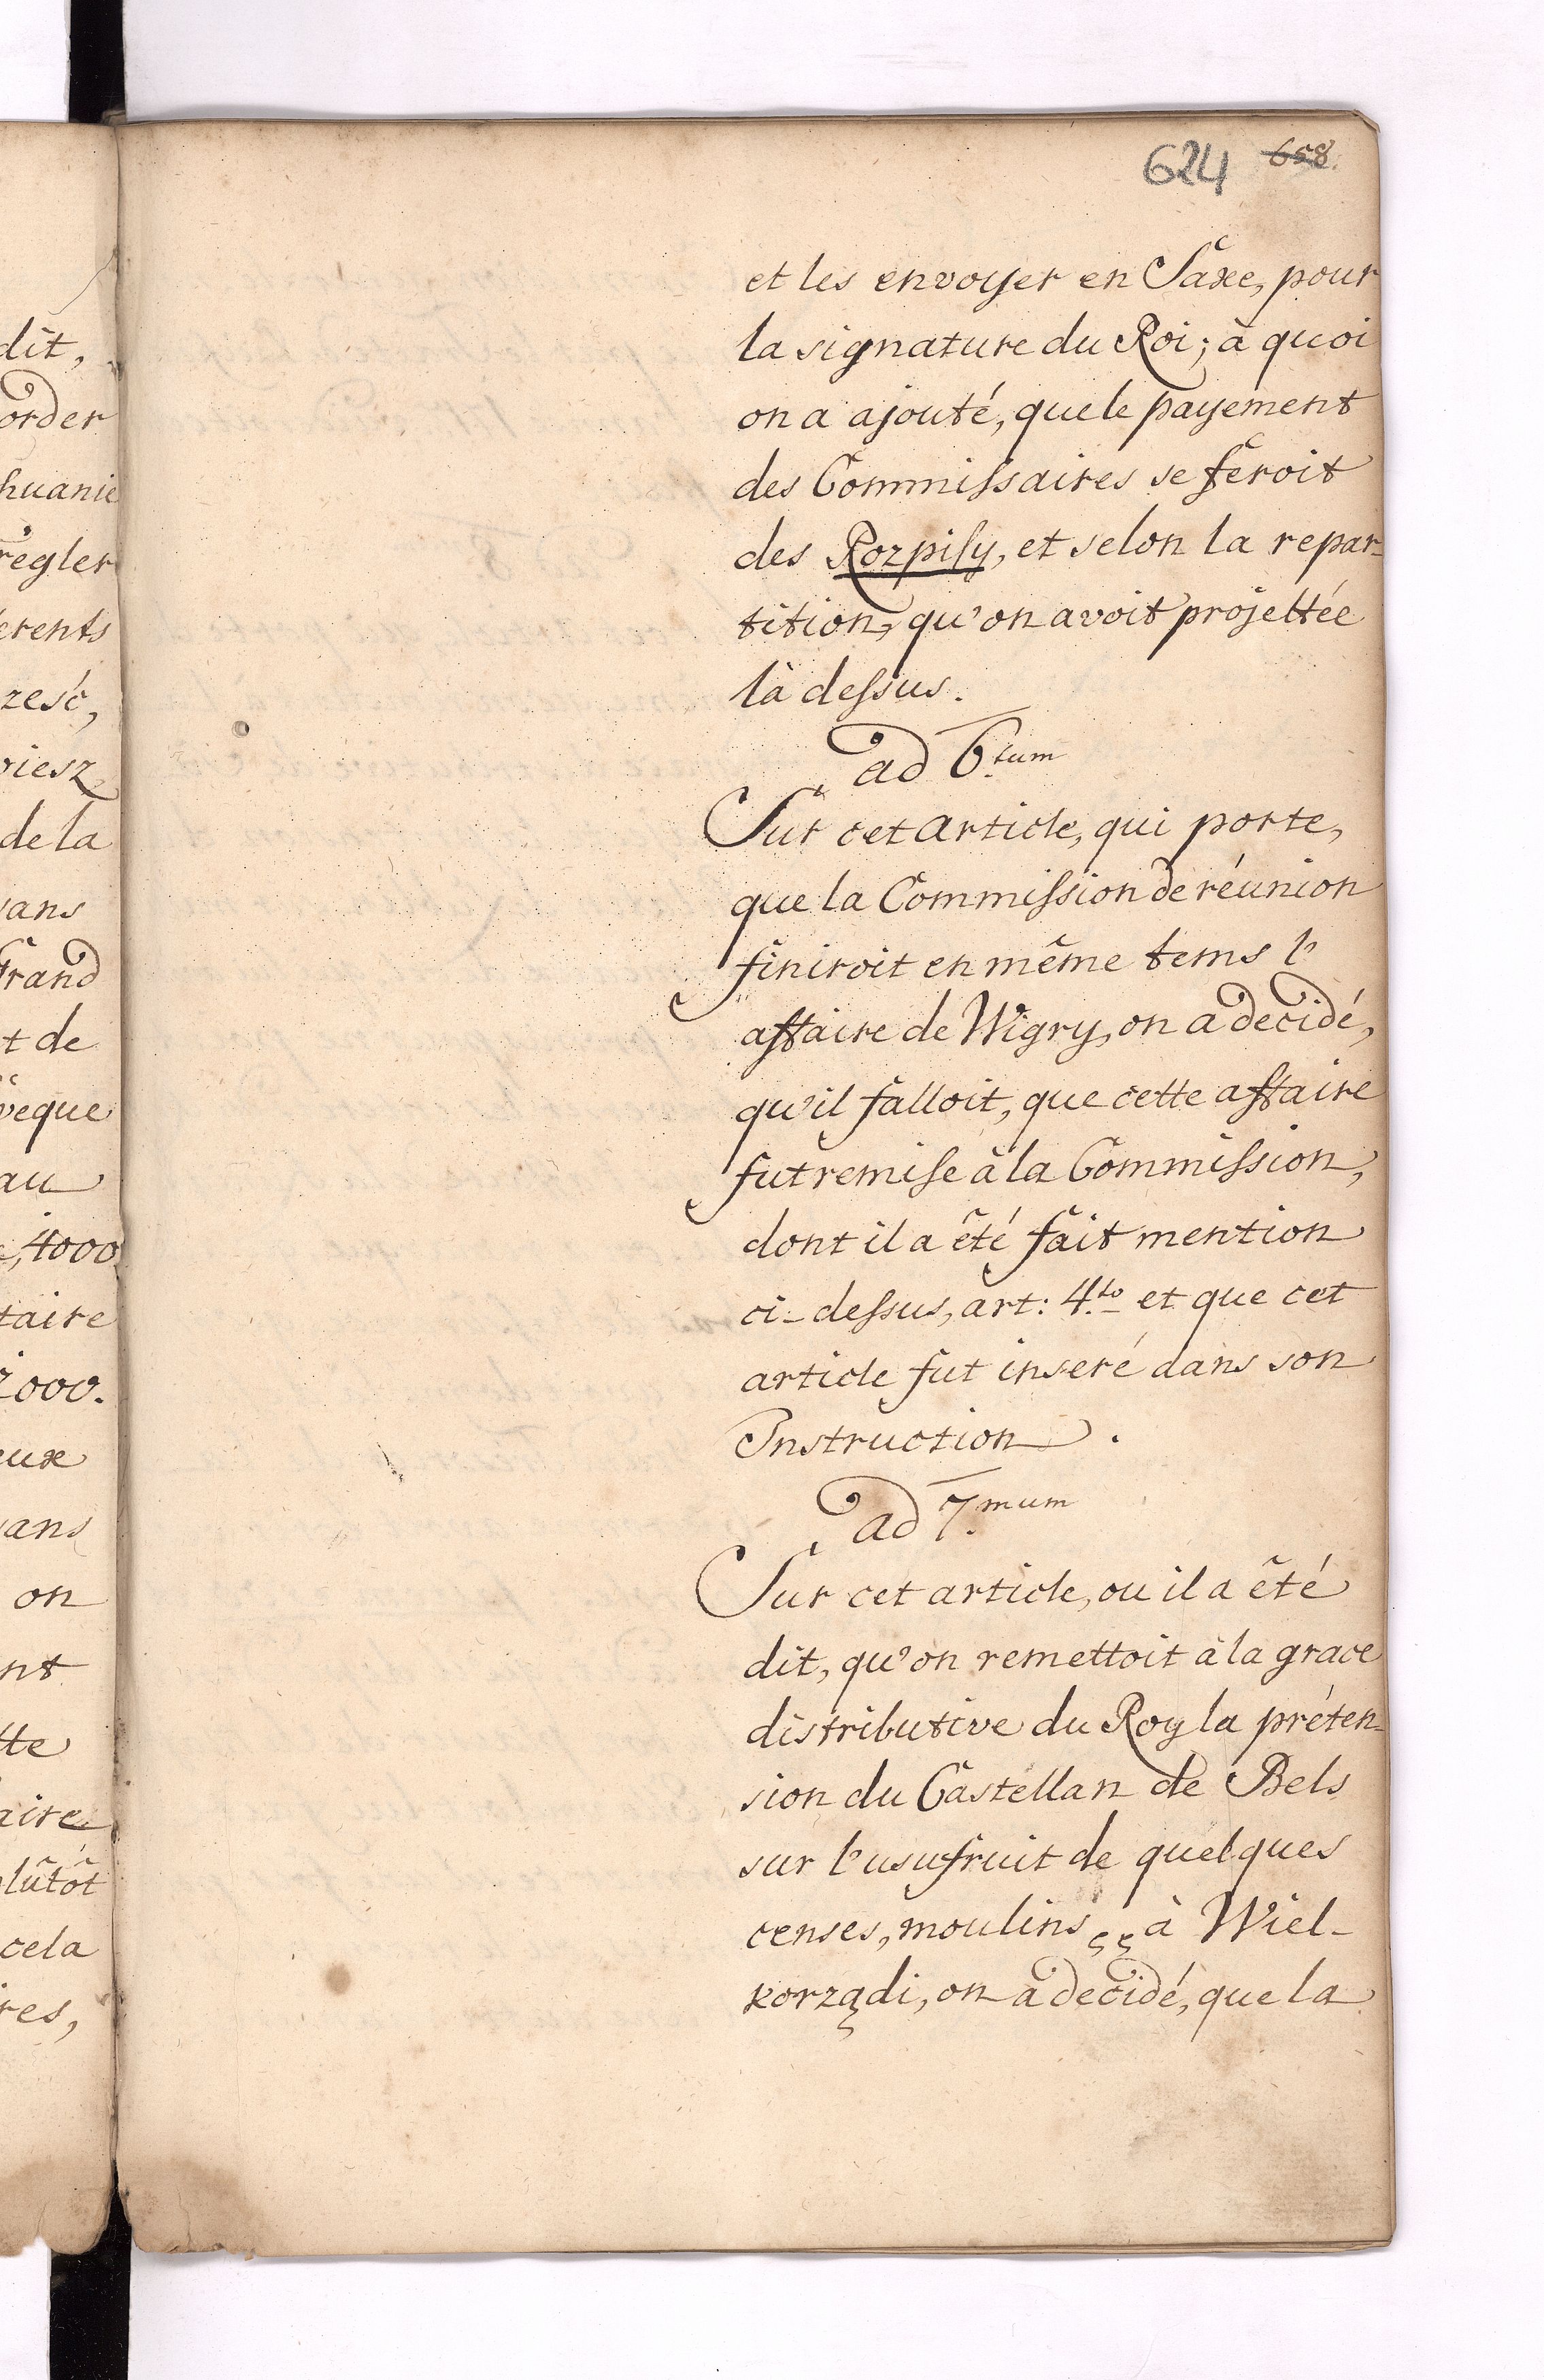 624 658.
et les envoyer en Saxe, pour
la signature du Roi; à quoi
on a ajouté, que le payement
des Commissaires se feroit
des Rozpisy, et selon la repar-
tition, qu'on avoit projettée
là dessus.
ad 6.tum
Sur cet article, qui porte,
que la Commission de réunion
finiroit en même tems l'
affaire de Wigry, on a decidé,
qu'il falloit, que cette affaire
fut remise à la Commission,
dont il a êté fait mention
ci-dessus, art: 4.to et que cet
article fut inseré dans son
Instruction.
ad 7.mum
Sur cet article, ou il a êté
dit, qu'on remettoit à la grace
distributive du Roy la préten-
sion du Castellan de Bels
sur l'usufruit de quelques
censes, moulins à Wiel-
korządi, on a decidé, que la
dit,
order
huanie
regler
erents
zesć,
viesz
de la
ans
Grand
t de
veque
au
4000
taire
2000.
eux
ans
on
nt
tte
aire
lûtôt
cela
res,